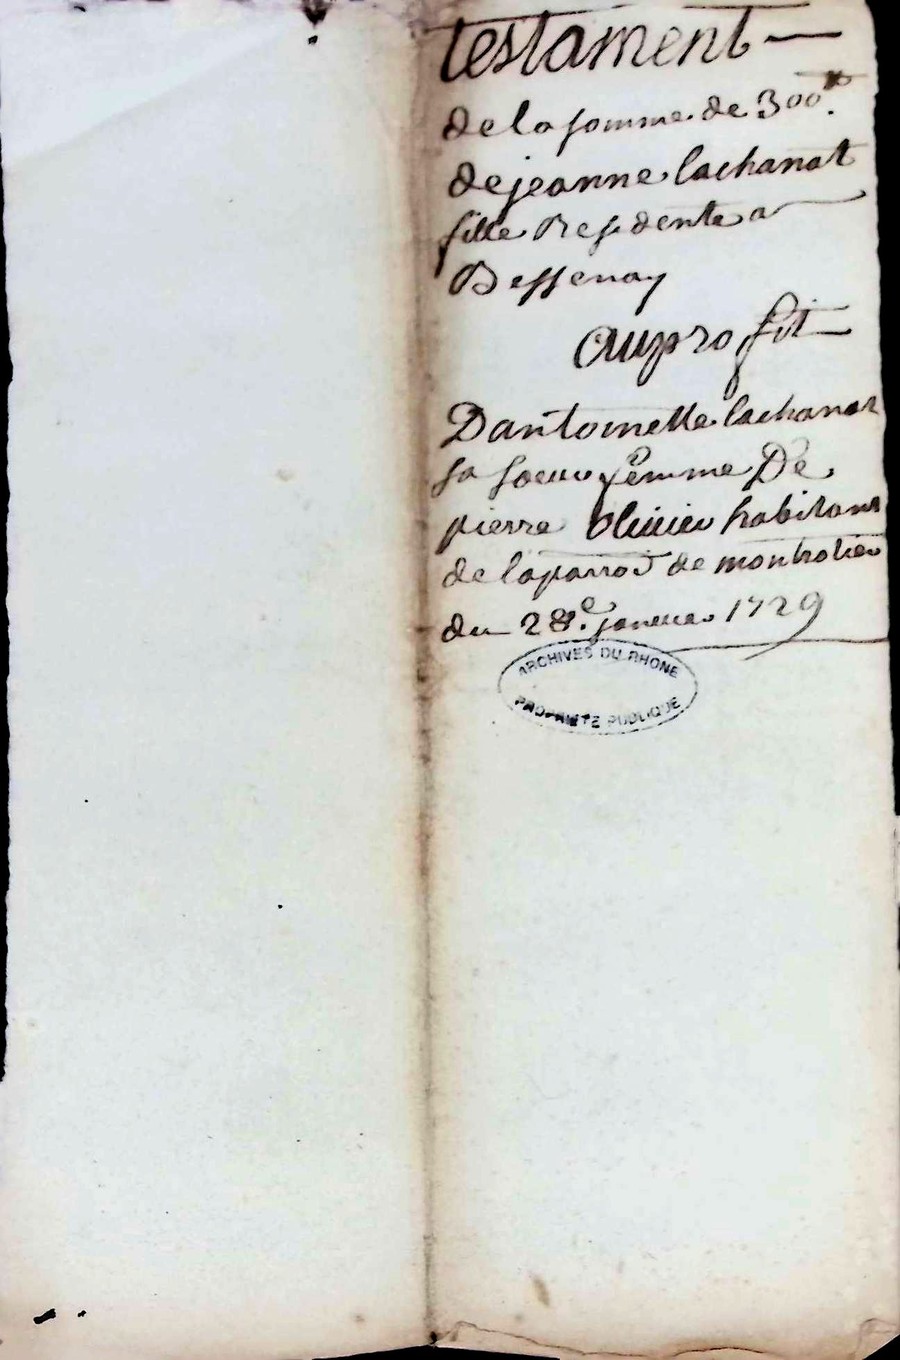 testament
de la somme de 300#.
de jeanne lachanat
fille Residente a
Bessenay
Au profit
Dantoinette lachanat
sa soeur femme De
pierre Olivier habitant
de la parroi de montrotier
du 28e. janvier 1729
ARCHIVES DU RHONE
PROPRIÉTÉ PUBLIQUE